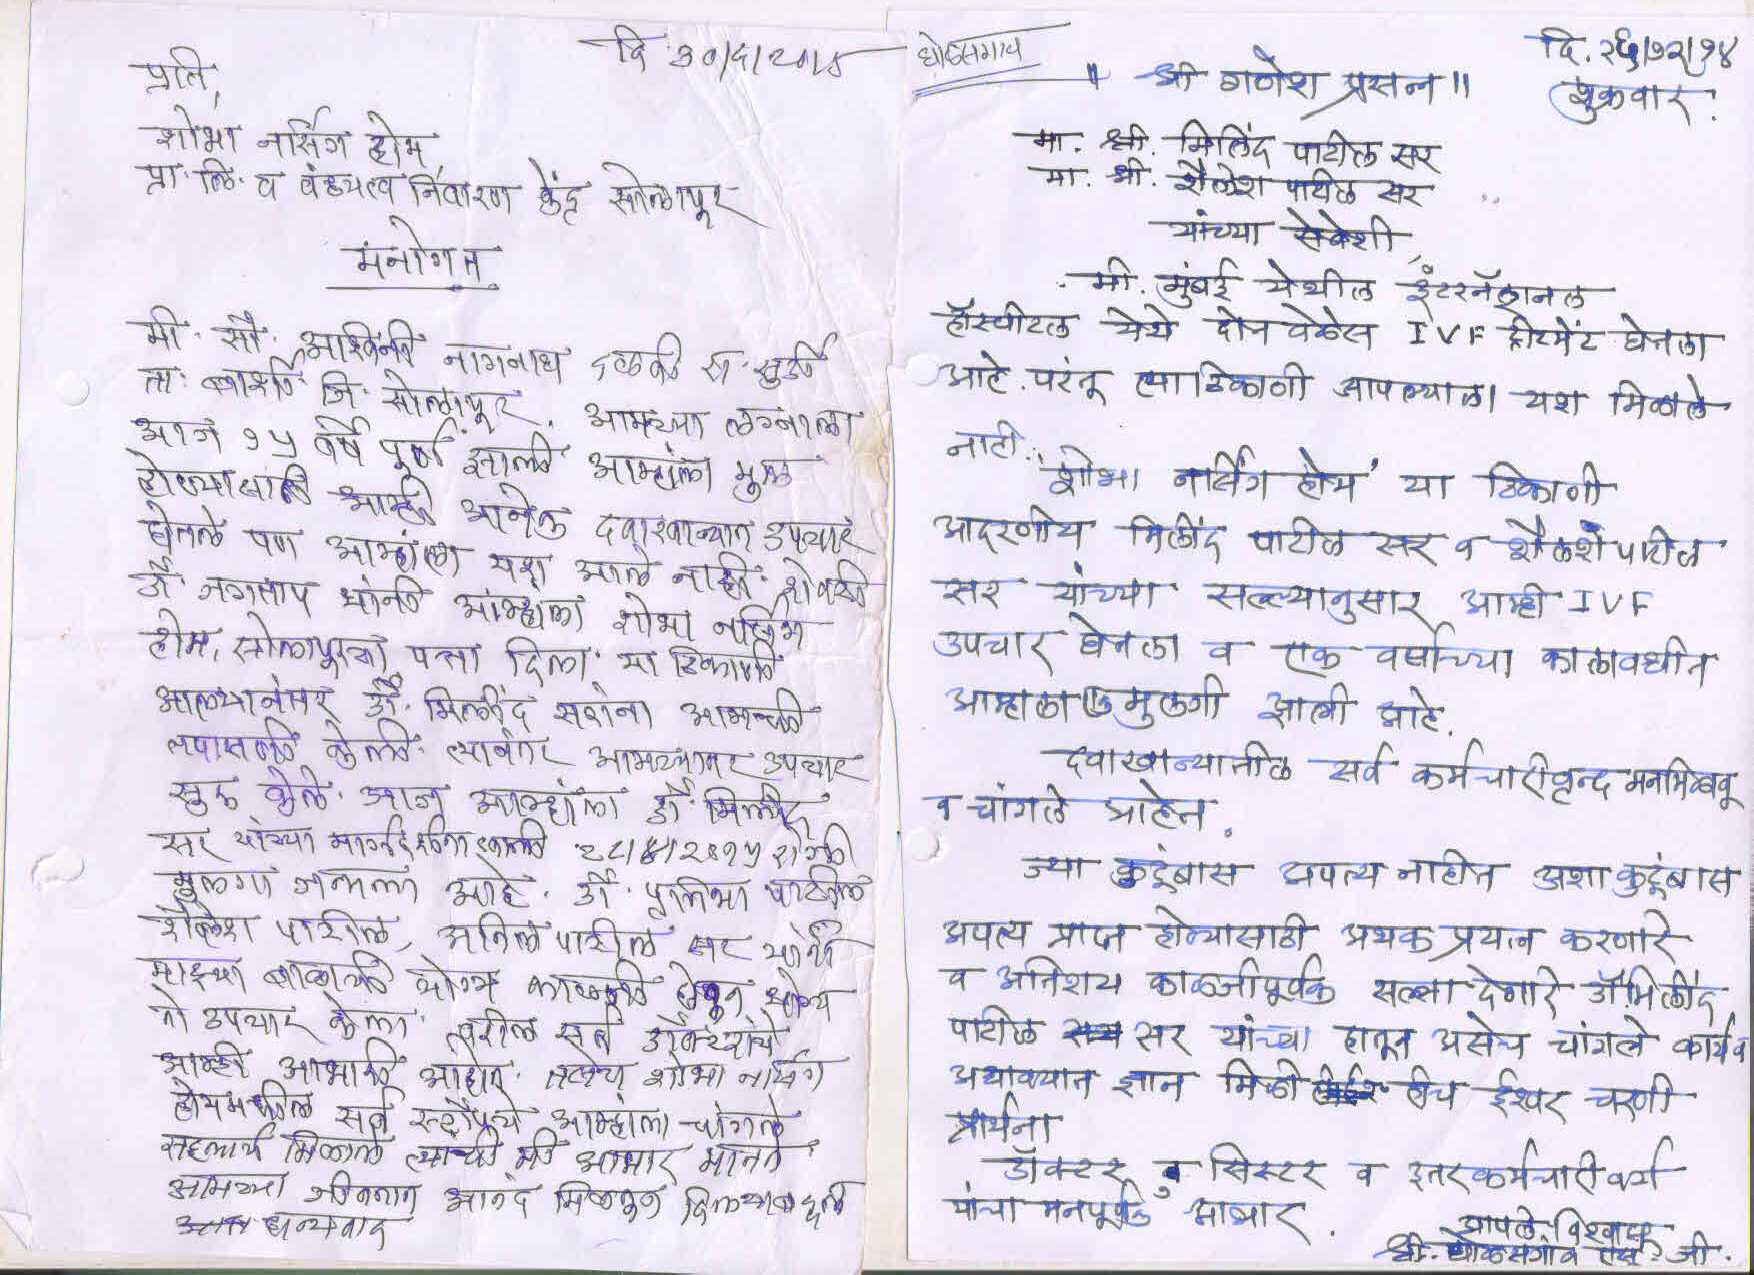 दि. ३०/६/२०१५
प्रति,
शोभा नर्सिंग होम,
प्रा. लि. व वंध्यत्व निवारण केंद्र सोलापूर
मनोगत
मी. सौ. अश्विनी नागनाथ दळवी रा. सुर्डी
ता. बार्शी जि. सोलापूर. आमच्या लग्नाला
आज १५ वर्षे पूर्ण झाली आम्हांला मुल
होण्यासाठी आम्ही अनेक दवाखान्यात उपचार
घेतले पण आम्हांला यश आले नाही. शेवटी
डॉ. जगताप यांनी आम्हाला शोभा नर्सिंग
होम, सोलापूरचा पत्ता दिला. या ठिकाणी
आल्यानंतर डॉ. मिलींद सरांना आमची
तपासणी केली. त्यानंतर आमच्यावर उपचार
सुरु केले. आज आम्हांला डॉ. मिलींद
सर यांच्या मार्गदर्शनाखाली २८/४/२०१५ रोजी
मुलगा जन्मला आहे. डॉ. प्रतिभा पाटील
शैलेश पाटील, अनिल पाटील सर यांनी
माझ्या बाळाची योग्य काळजी घेवून योग्य
तो उपचार केला. वरील सर्व डॉक्टरांचे
आम्ही आभारी आहोत. तसेच शोभा नर्सिंग
होममधील सर्व स्टाफचे आम्हांला चांगले
सहकार्य मिळाले त्याची मी आभार मानते
आमच्या जीवनात आनंद मिळवून दिल्याबद्दल
धन्यवाद
घोळसगाव
दि. २६/१२/१४
शुक्रवार.
॥ श्री गणेश प्रसन्न ॥
मा. श्री. मिलिंद पाटील सर
मा. श्री. शैलेश पाटील सर
यांच्या सेवेशी,
मी. मुंबई येथील इंटरनॅशनल
हॉस्पीटल येथे दोन वेळेस IVF ट्रीटमेंट घेतला
आहे. परंतू त्याठिकाणी आपल्याला यश मिळाले
नाही.
'शोभा नर्सिंग होम' या ठिकाणी
आदरणीय मिलींद पाटील सर व शैलेश पाटील
सर यांच्या सल्ल्यानुसार आम्ही IVF
उपचार घेतला व एक वर्षाच्या कालावधीत
आम्हाला मुलगी झाली आहे.
दवाखान्यातील सर्व कर्मचारीवृन्द मनमिळावू
व चांगले आहेत.
ज्या कुटूंबास अपत्य नाहीत अशा कुटूंबास
अपत्य प्राप्त होण्यासाठी अथक प्रयत्न करणारे
व अतिशय काळजीपूर्वक सल्ला देणारे डॉ. मिलींद
पाटील सर यांच्या हातून असेच चांगले कार्य व
अद्यावयात ज्ञान मिळो हीच ईश्वर चरणी
प्रार्थना
डॉक्टर, सिस्टर व इतर कर्मचारी वर्ग
यांचा मनपूर्वक आभार.
आपले विश्वासू
श्री. घोळसगाव एस. जी.